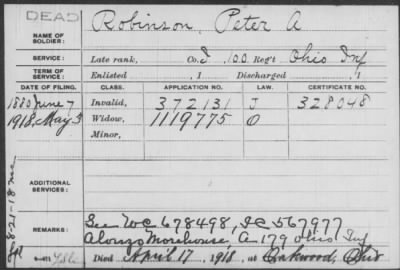 DEAD
Robinson, Peter A
NAME OF SOLDIER:
SERVICE: Late rank, Co. I, 100 Reg't Ohio Inf
TERM OF SERVICE: Enlisted , 1 Discharged , 1
DATE OF FILING. CLASS. APPLICATION NO. LAW. CERTIFICATE NO.
1880 June 7 Invalid, 372131 J 328048
1918, May 3 Widow, 1119775 O
Minor,
ADDITIONAL SERVICES:
See WC 678498, IC 567977
REMARKS: Alonzo Morehouse, A 179 Ohio Inf
Died April 17, 1918, at Oakwood, Ohio
8-21-18